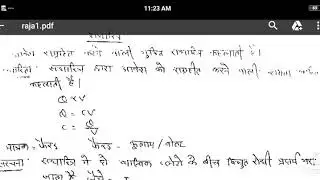 11:23 AM
raja1.pdf
संधारित्र
आवेश संग्रहित करने वाली युक्ति संधारित्र कहलाती है।
धारिता: संधारित्र द्वारा आवेश को संग्रहित करने वाली क्षमता
कहलाती है।
Q ∝ V
Q = CV
C = Q/V
मात्रक = फैरड फैरड = कूलाम / वोल्ट
संधारित्र में दो चालक प्लेटों के बीच विद्युत रोधी पदार्थ भरा
जाता है